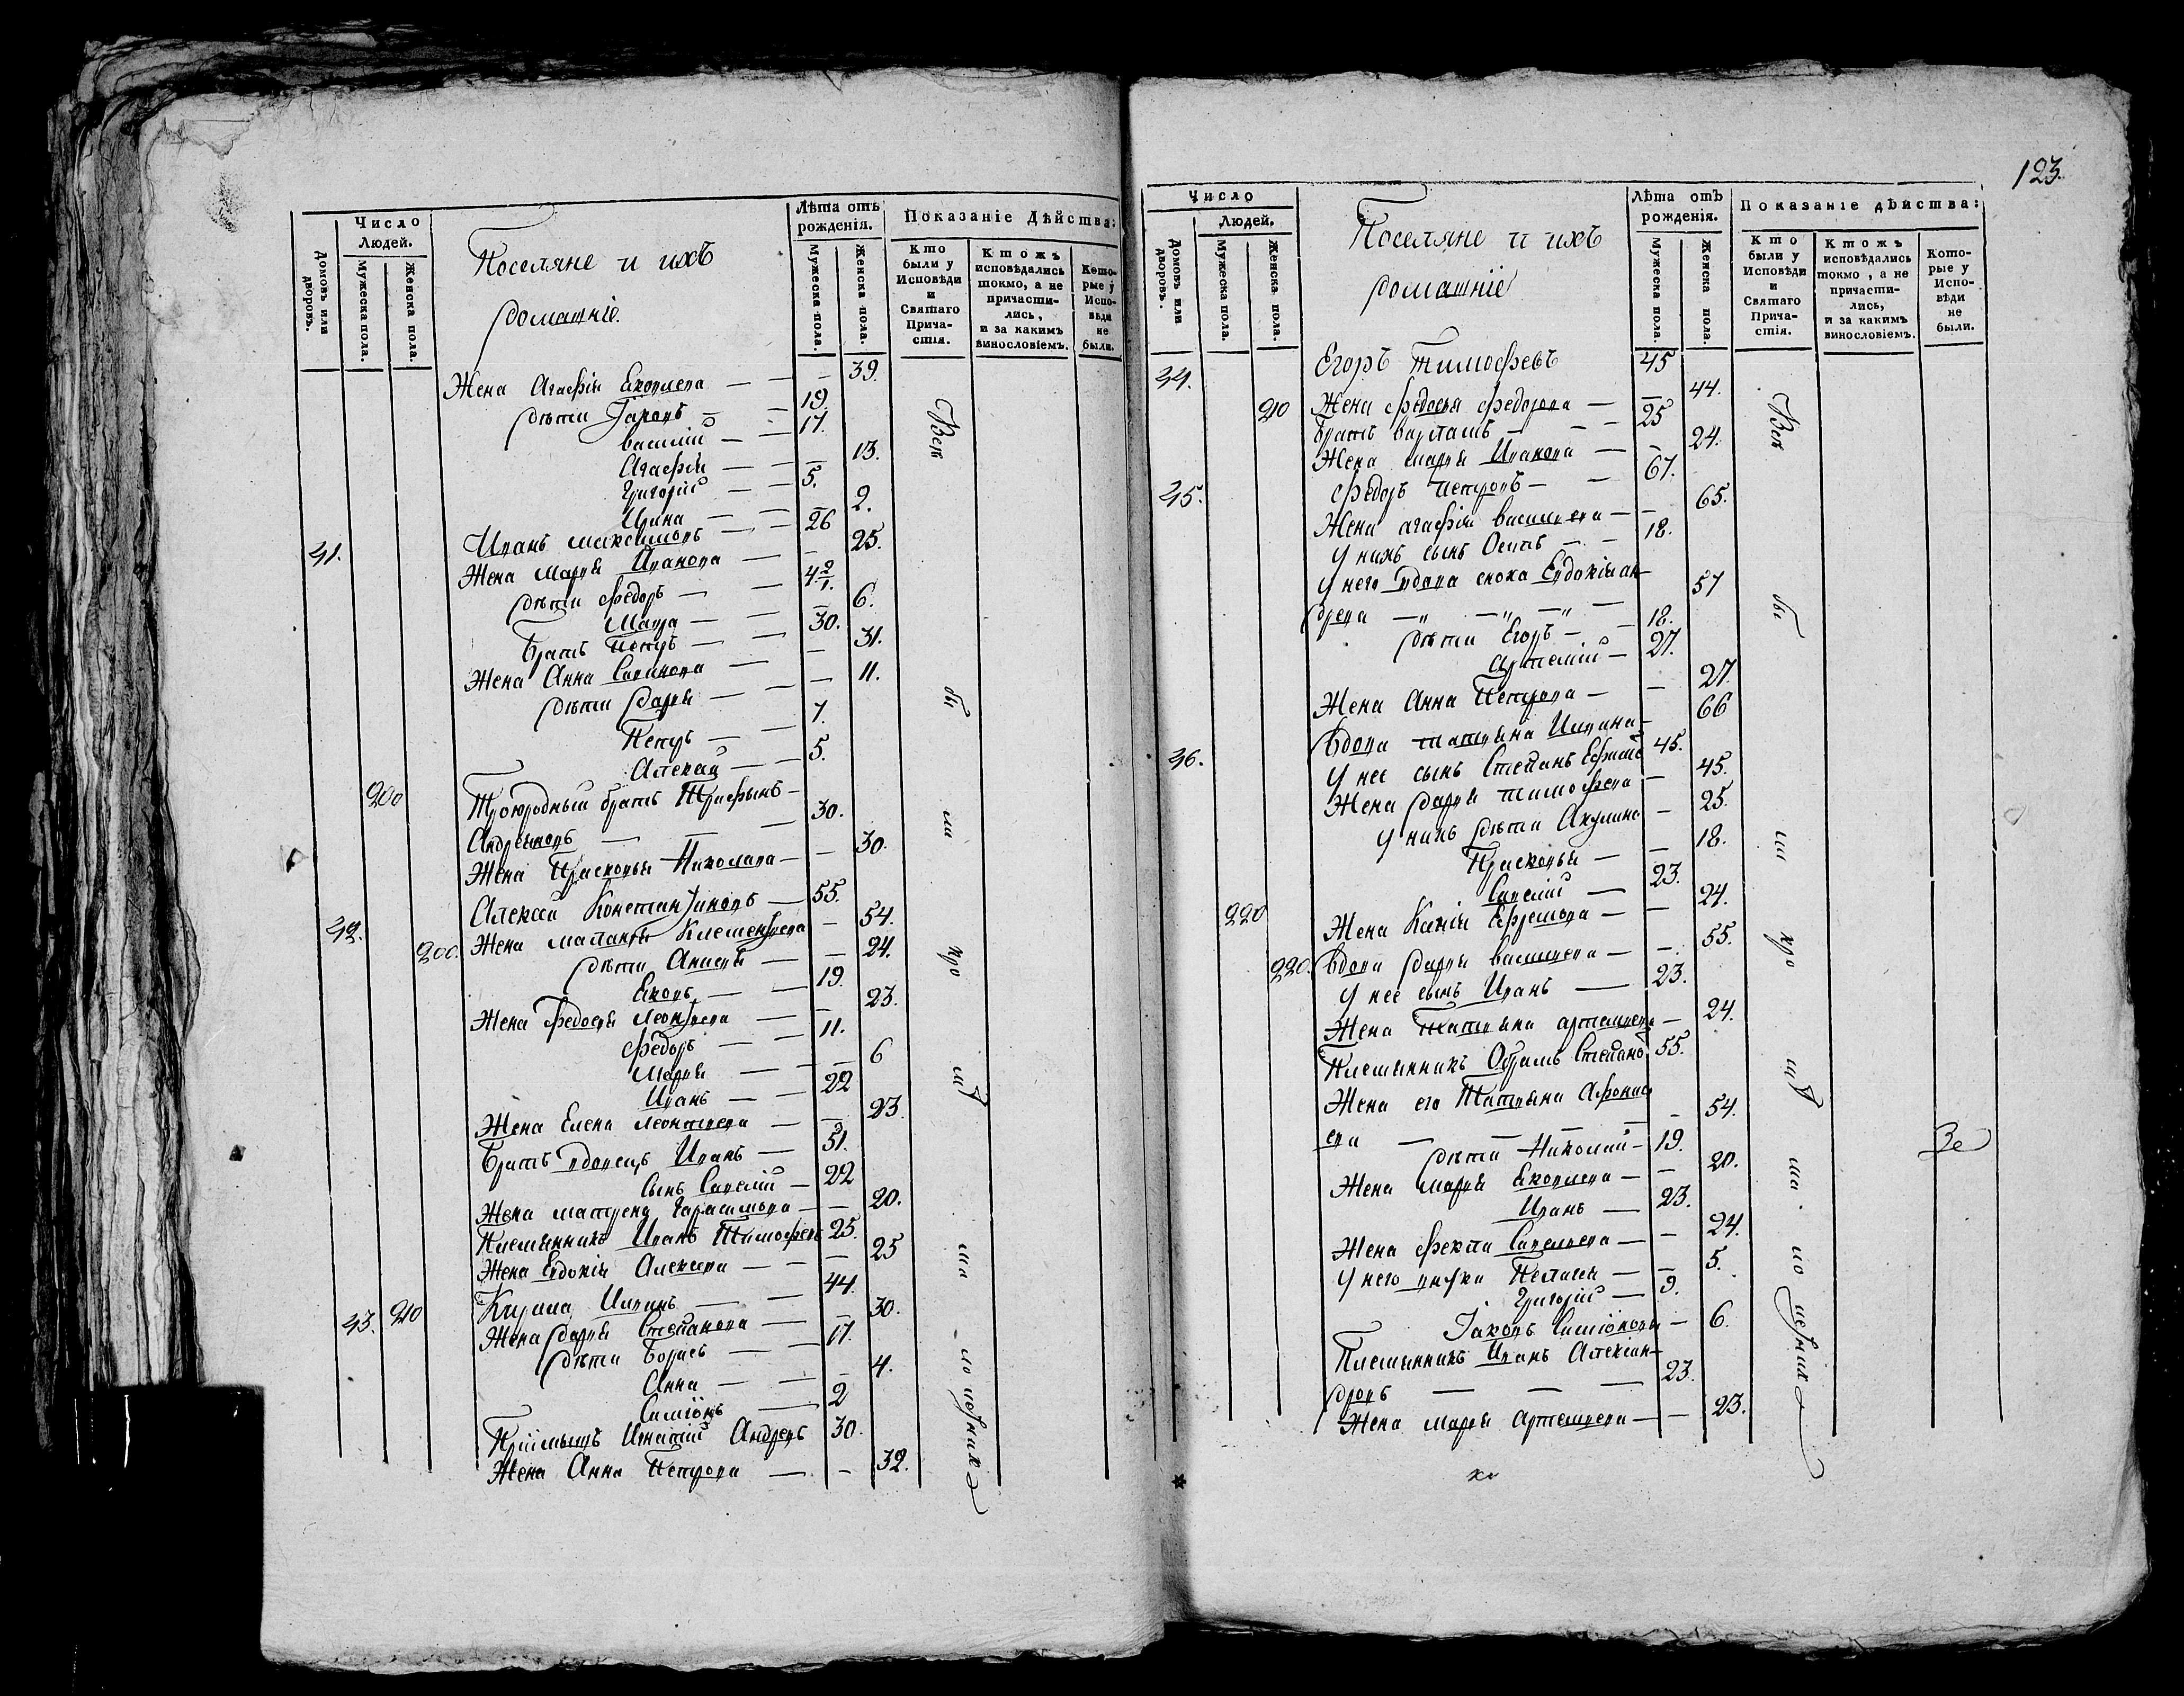 Число
Людей.
Домовъ или дворовъ.
Мужеска пола.
Женска пола.
Поселяне и ихъ
домашніе.
Лѣта отъ
рожденія.
Мужеска пола.
Женска пола.
Показаніе Дѣйства:
Кто
были у
Исповѣди
и
Святаго
Прича-
стія.
Ктожъ
исповѣдались
токмо, а не
причасти-
лись,
и за какимъ
винословіемъ.
Кото-
рые у
Испо-
вѣди
не
были.
Жена Агафія Яковлева — — — 39.
дѣти Іаковъ — — 19.
василій — — 17.
Агафія — — — 13.
Григорій — — 5.
Ирина — — — 2.
41. Иванъ максимовъ — — 26
Жена Марѳа Иванова — — 25.
дѣти Федоръ — — 4
Мавра — — — 6.
Братъ Петръ — — 30.
Жена Анна Савинова — — 31.
дѣти Дарья — — — 11.
Петръ — — 7.
Алексѣй — — 5.
200 Троюродный братъ Трифонъ —
Андреяновъ — — — 30.
Жена Прасковья Николаева — — 30.
42. Алексѣй Константиновъ — 55.
200. Жена маланья Клементьева — 54.
дѣти Анисья — — 24.
Яковъ — — 19.
Жена Федосья Леонтьева — — 23.
Федоръ — — 11.
Марья — — — 6
Иванъ — — 22
Жена Елена Леонтьева — — 23.
Братъ вдовецъ Иванъ — 51.
Сынъ Савелій — 22
Жена матрена Гарасимова — — 20.
Племянникъ Иванъ Тимофеевъ 25.
Жена Евдокія Алексѣева — — — 25
43. 210 Кирила Ивановъ — — 44.
Жена Дарья Степанова — — 30.
дѣти Борисъ — — 17.
Анна — — — 4.
Симіонъ — 2
Пріймышъ Игнатій Андреевъ 30.
Жена Анна Петрова — — 32.
Всѣ
бы
ли
кро
мѣ
ма
лолѣтних
123.
Число
Людей.
Домовъ или дворовъ.
Мужеска пола.
Женска пола.
Поселяне и ихъ
домашніе
Лѣта отъ
рожденія.
Мужеска пола.
Женска пола.
Показаніе дѣйства:
Кто
были у
Исповѣди
и
Святаго
Прича-
стія.
Ктожъ
исповѣдались
токмо, а не
причасти-
лись,
и за какимъ
винословіемъ.
Кото-
рые у
Испо-
вѣди
не
были.
44. Егоръ Тимофеевъ 45
210 Жена Федосья Федорова — — 44.
Братъ варламъ — — — 25
Жена марья Иванова — — 24.
45. Федоръ Петровъ — — 67.
Жена агафія васильева — — 65.
У нихъ сынъ Осипъ — — 18.
У него вдова сноха Евдокія ан-
дреева — — — 57
дѣти Егоръ — — 18.
артемій — 27.
Жена Анна Петрова — — 27.
Вдова татьяна Ивлина — 66
46. У нее сынъ Степанъ 45.
Жена Дарья тимофеева — 45.
У нихъ дѣти Акулина — 25.
Прасковья — — 18.
Савелій — 23.
220 Жена Ксенія Ефремова — — 24.
220. Вдова Дарья васильева — — 55.
У нее сынъ Иванъ — 23.
Жена Татьяна артемьева — 24.
Племянникъ Степановъ 55.
Жена его Татьяна Афонась
ева — — — — 54.
дѣти Николай — 19.
Жена Марья Яковлева — — 20.
Иванъ — 23.
Жена Фекла Савельева — — 24.
У него внуки Пелагея — — 5.
Григорій — 3.
Іаковъ Симіонова — 6.
Племянникъ Иванъ Алексан-
дровъ — — — 23.
Жена марья артемьева — — 23.
Всѣ
бы
ли
кро
мѣ
ма
лолѣтних